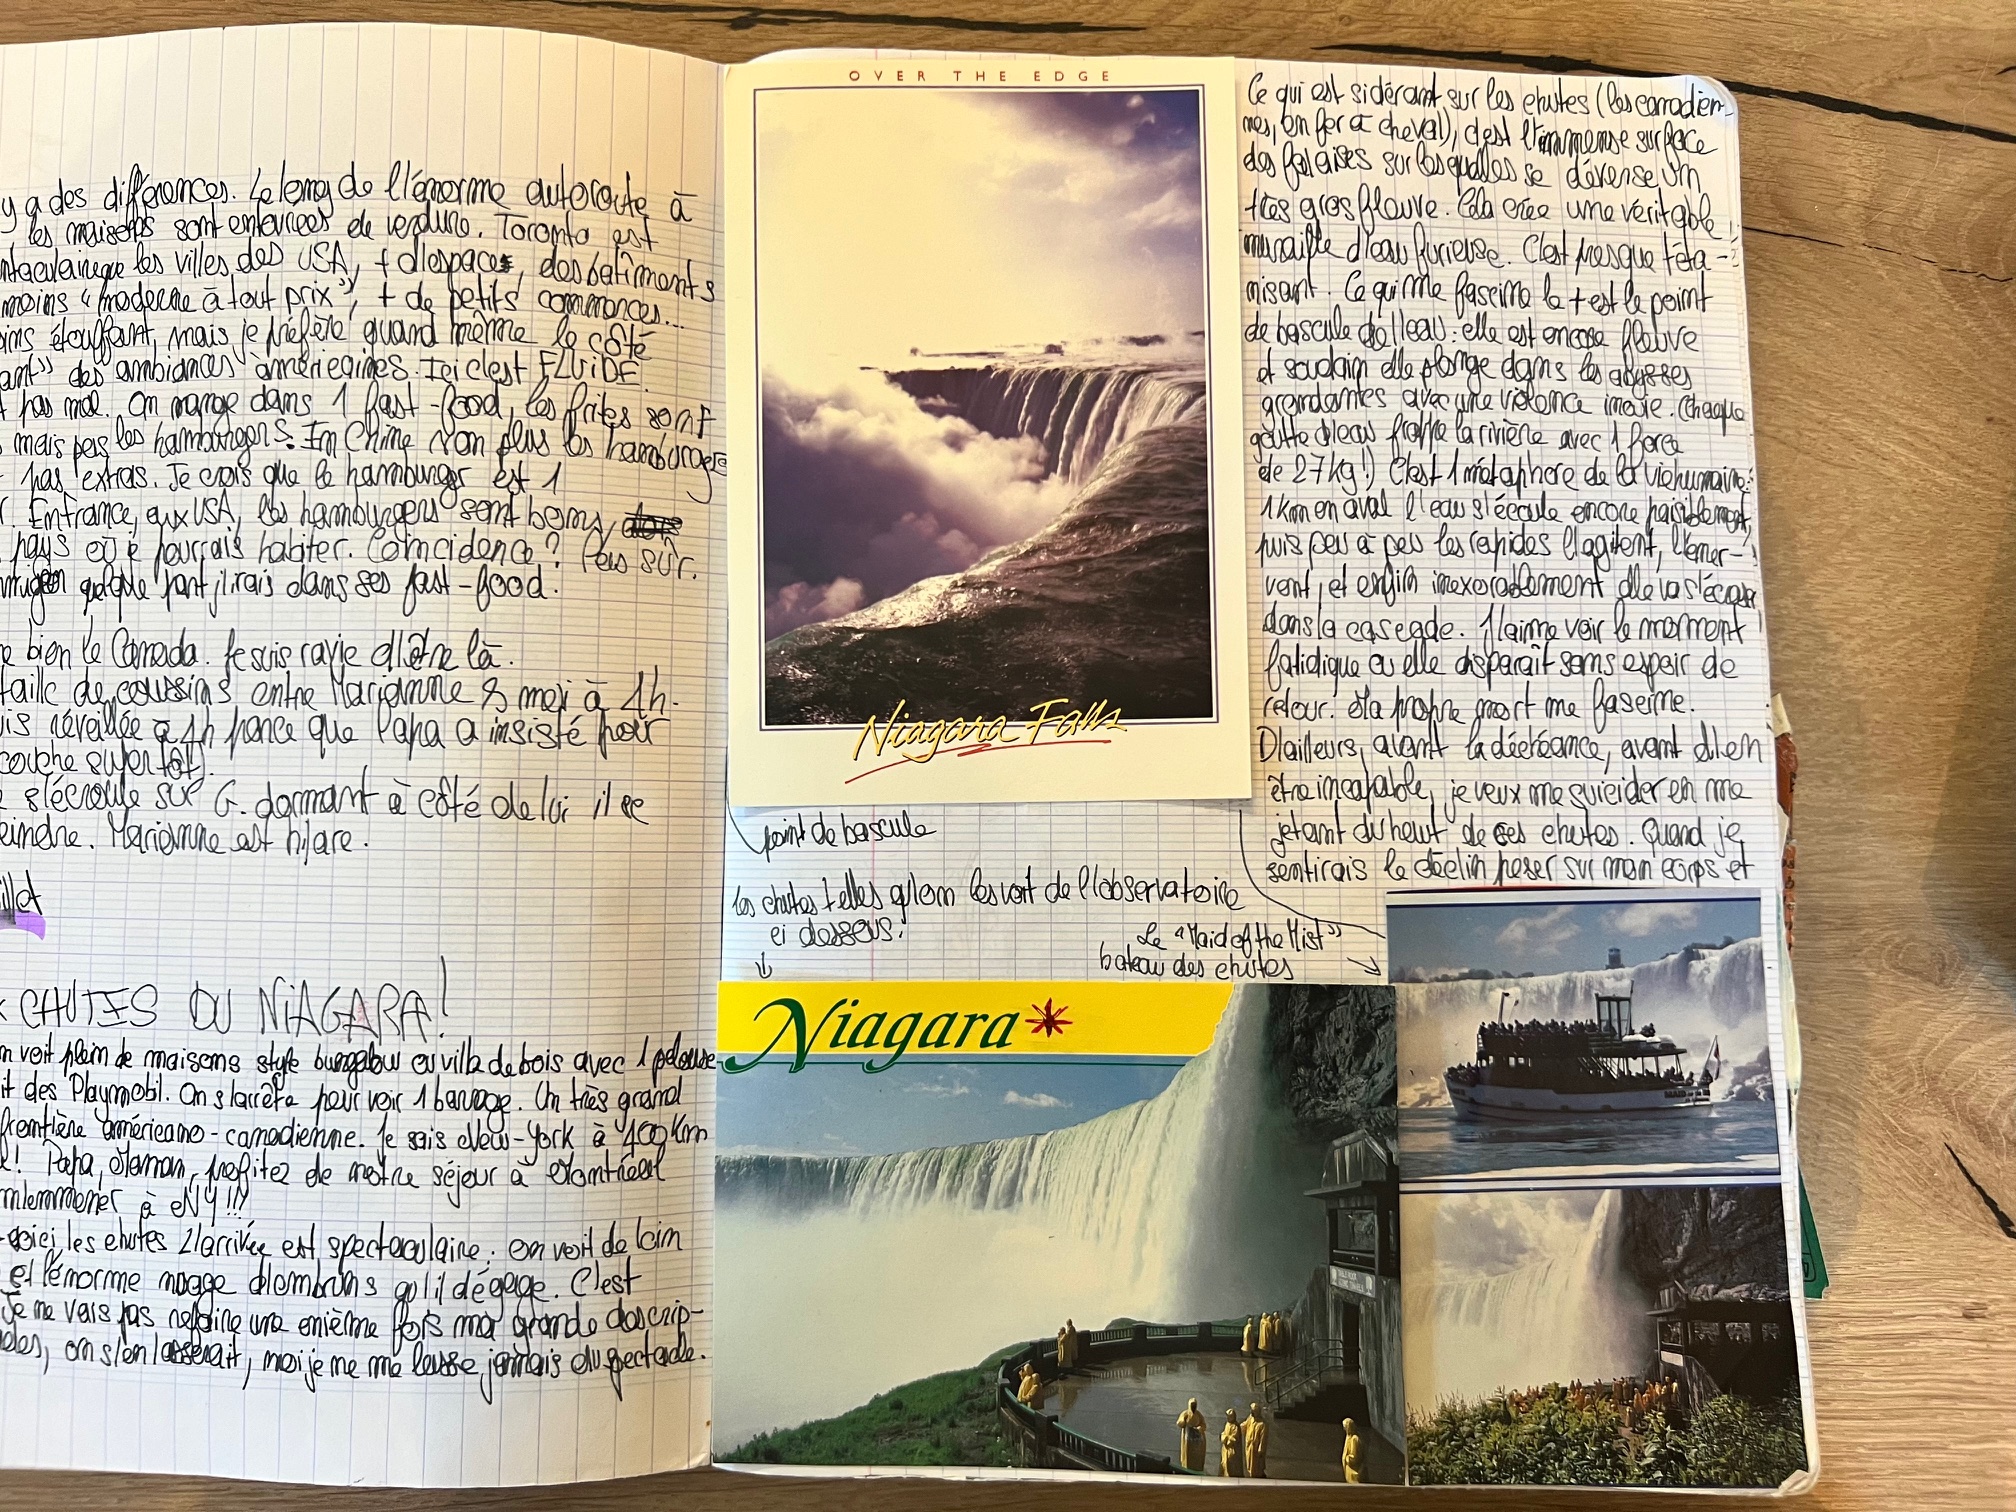 y a des différences. Le long de l'énorme autoroute à
les maisons sont entourées de verdure. Toronto est
que les villes des USA, + d'espaces, des bâtiments
moins "moderne à tout prix", + de petits commerces...
étouffant, mais je préfère quand même le côté
ant" des ambiances américaines. Ici c'est FLUIDE.
pas mal. On mange dans 1 fast-food, les frites sont
mais pas les hamburgers. En Chine non plus les hamburgers
pas extras. Je crois que le hamburger est 1
En France, aux USA, les hamburgers sont bons,
pays où je pourrais habiter. Coïncidence ? Pas sûr.
quelque part j'irais dans ses fast-food.
e bien le Canada. Je suis ravie d'être là.
taille de coussins entre Marianne & moi à 1h.
is réveillée à 1h parce que Papa a insisté pour
couche super tôt.
s'écroule sur G. dormant à côté de lui il se
eindre. Marianne est hilare.
illet
CHUTES DU NIAGARA!
n voit plein de maisons style bungalow ou villa de bois avec 1 pelouse
it des Playmobil. On s'arrête pour voir 1 barrage. Un très grand
frontière américano-canadienne. Je sais New-York à 400 km
! Papa, Maman, profitez de notre séjour à Montréal
m'emmener à NY !!!
voici les chutes L'arrivée est spectaculaire : on voit de loin
et l'énorme nuage d'embruns qu'il dégage. C'est
Je ne vais pas refaire une enième fois ma grande descrip-
des, on s'en lasserait, moi je ne me lasse jamais du spectacle.
OVER THE EDGE
Niagara Falls
point de bascule
les chutes telles qu'on les voit de l'observatoire
ci dessous:
Le "Maid of the Mist"
bateau des chutes
Niagara
Ce qui est sidérant sur les chutes (les canadien-
nes, en fer à cheval), c'est l'immense surface
des falaises sur lesquelles se déverse un
très gros fleuve. Cela crée une véritable
muraille d'eau furieuse. C'est presque téta-
nisant. Ce qui me fascine le + est le point
de bascule de l'eau : elle est encore fleuve
et soudain elle plonge dans les abysses
grondantes avec une violence inouïe. (Chaque
goutte d'eau frappe la rivière avec 1 force
de 27kg!) C'est 1 métaphore de la vie humaine:
1 km en aval l'eau s'écoule encore paisiblement,
puis peu à peu les rapides l'agitent, l'éner-
vent, et enfin inexorablement elle va s'écraser
dans la cascade. J'aime voir le moment
fatidique où elle disparaît sans espoir de
retour. Ma propre mort me fascine.
D'ailleurs, avant la déchéance, avant d'en
être incapable, je veux me suicider en me
jetant du haut de ces chutes. Quand je
sentirais le déclin peser sur mon corps et